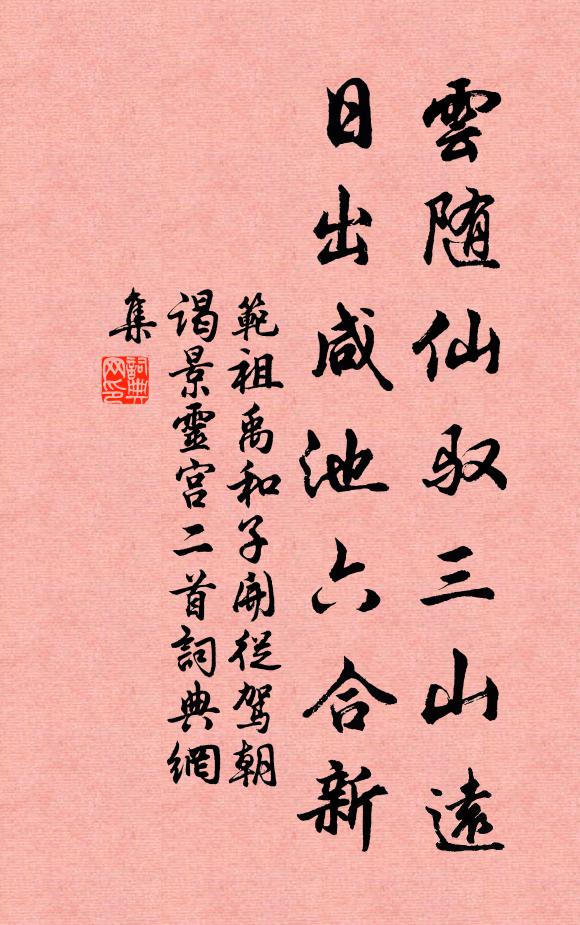 雲随仙驭三山遠
日出咸池六合新
範祖禹和子開從駕朝
谒景靈宫二首詞典網
集
詞典
网印